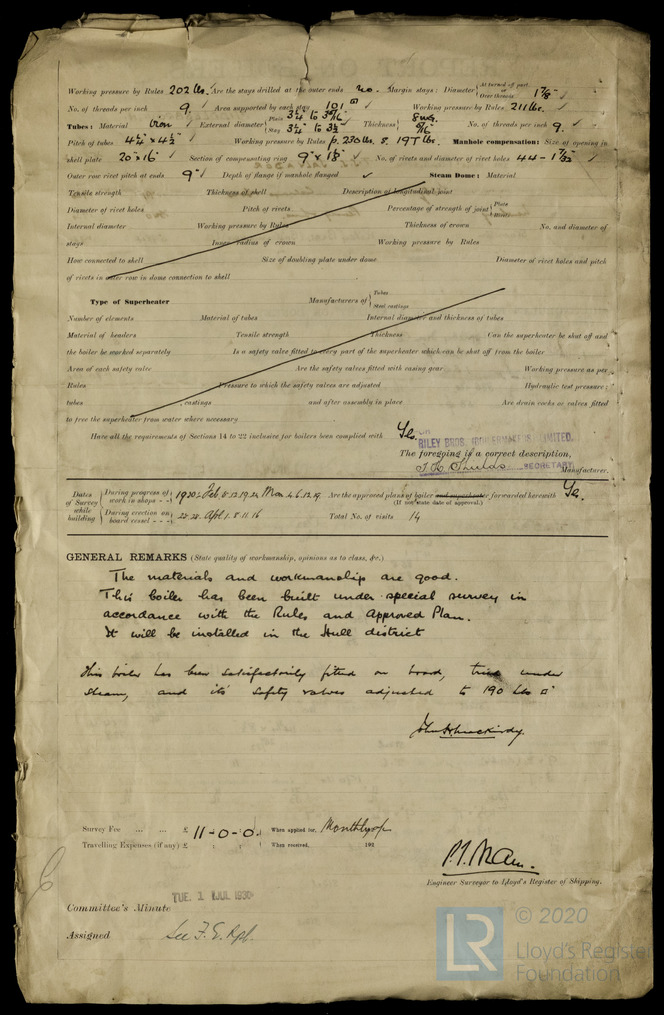 Working pressure by Rules 202 lbs. Are the stays drilled at the outer ends no. Margin stays: Diameter { At turned off part, Over threads 1 7/8"
No. of threads per inch 9. Area supported by each stay 101 Working pressure by Rules. 211 lbs.
Tubes: Material Iron External diameter { Plain 3 1/4" to Stay 3 1/4" to 3 1/2 Thickness { 8wg. 5/16 No. of threads per inch 9.
Pitch of tubes 4 1/2" x 4 1/2" Working pressure by Rules p. 230 lbs. s. 195 lbs. Manhole compensation: Size of opening in
shell plate 20" x 16" Section of compensating ring No. of rivets and diameter of rivet holes 44 - 1 7/32"
Outer row rivet pitch at ends 9" Depth of flange if manhole flanged Steam Dome: Material
Tensile strength Thickness of shell Description of longitudinal joint
Diameter of rivet holes Pitch of rivets Percentage of strength of joint { Plate Rivets
Internal diameter Working pressure by Rules Thickness of crown No. and diameter of
stays Inner radius of crown Working pressure by Rules
How connected to shell Size of doubling plate under dome Diameter of rivet holes and pitch
of rivets in outer row in dome connection to shell
Type of Superheater Manufacturers of { Tubes Steel castings
Number of elements Material of tubes Internal diameter and thickness of tubes
Material of headers Tensile strength Thickness Can the superheater be shut off and
the boiler be worked separately Is a safety valve fitted to every part of the superheater which can be shut off from the boiler
Area of each safety valve Are the safety valves fitted with easing gear Working pressure as per
Rules Pressure to which the safety valves are adjusted Hydraulic test pressure:
tubes , castings and after assembly in place Are drain cocks or valves fitted
to free the superheater from water where necessary
Have all the requirements of Sections 14 to 22 inclusive for boilers been complied with Yes.
FOR RILEY BROS. (BOILERMAKERS) LIMITED.
The foregoing is a correct description,
SECRETARY Manufacturer.
Dates of Survey while building { During progress of work in shops - - 1930: Feb 8. 12. 19. 24 Mar 4. 6. 12. 19. Are the approved plans of boiler and superheater forwarded herewith Yes.
(If not state date of approval.)
During erection on board vessel - - - Apl 1. 8. 11. 16 Total No. of visits 14
GENERAL REMARKS (State quality of workmanship, opinions as to class, &c.)
The materials and workmanship are good.
This boiler has been built under special survey in
accordance with the Rules and Approved Plan.
It will be installed in the Hull district
This boiler has been satisfactorily fitted on board, tried under
steam, and its safety valves adjusted to 190 lbs □"
Survey Fee ... ... £ 11-0-0 When applied for, Monthly
Travelling Expenses (if any) £ : : When received, 192
Engineer Surveyor to Lloyd's Register of Shipping.
TUE. 1 JUL 1930
Committee's Minute
Assigned See F. E. Rpt.
LR © 2020
Lloyd's Register
Foundation